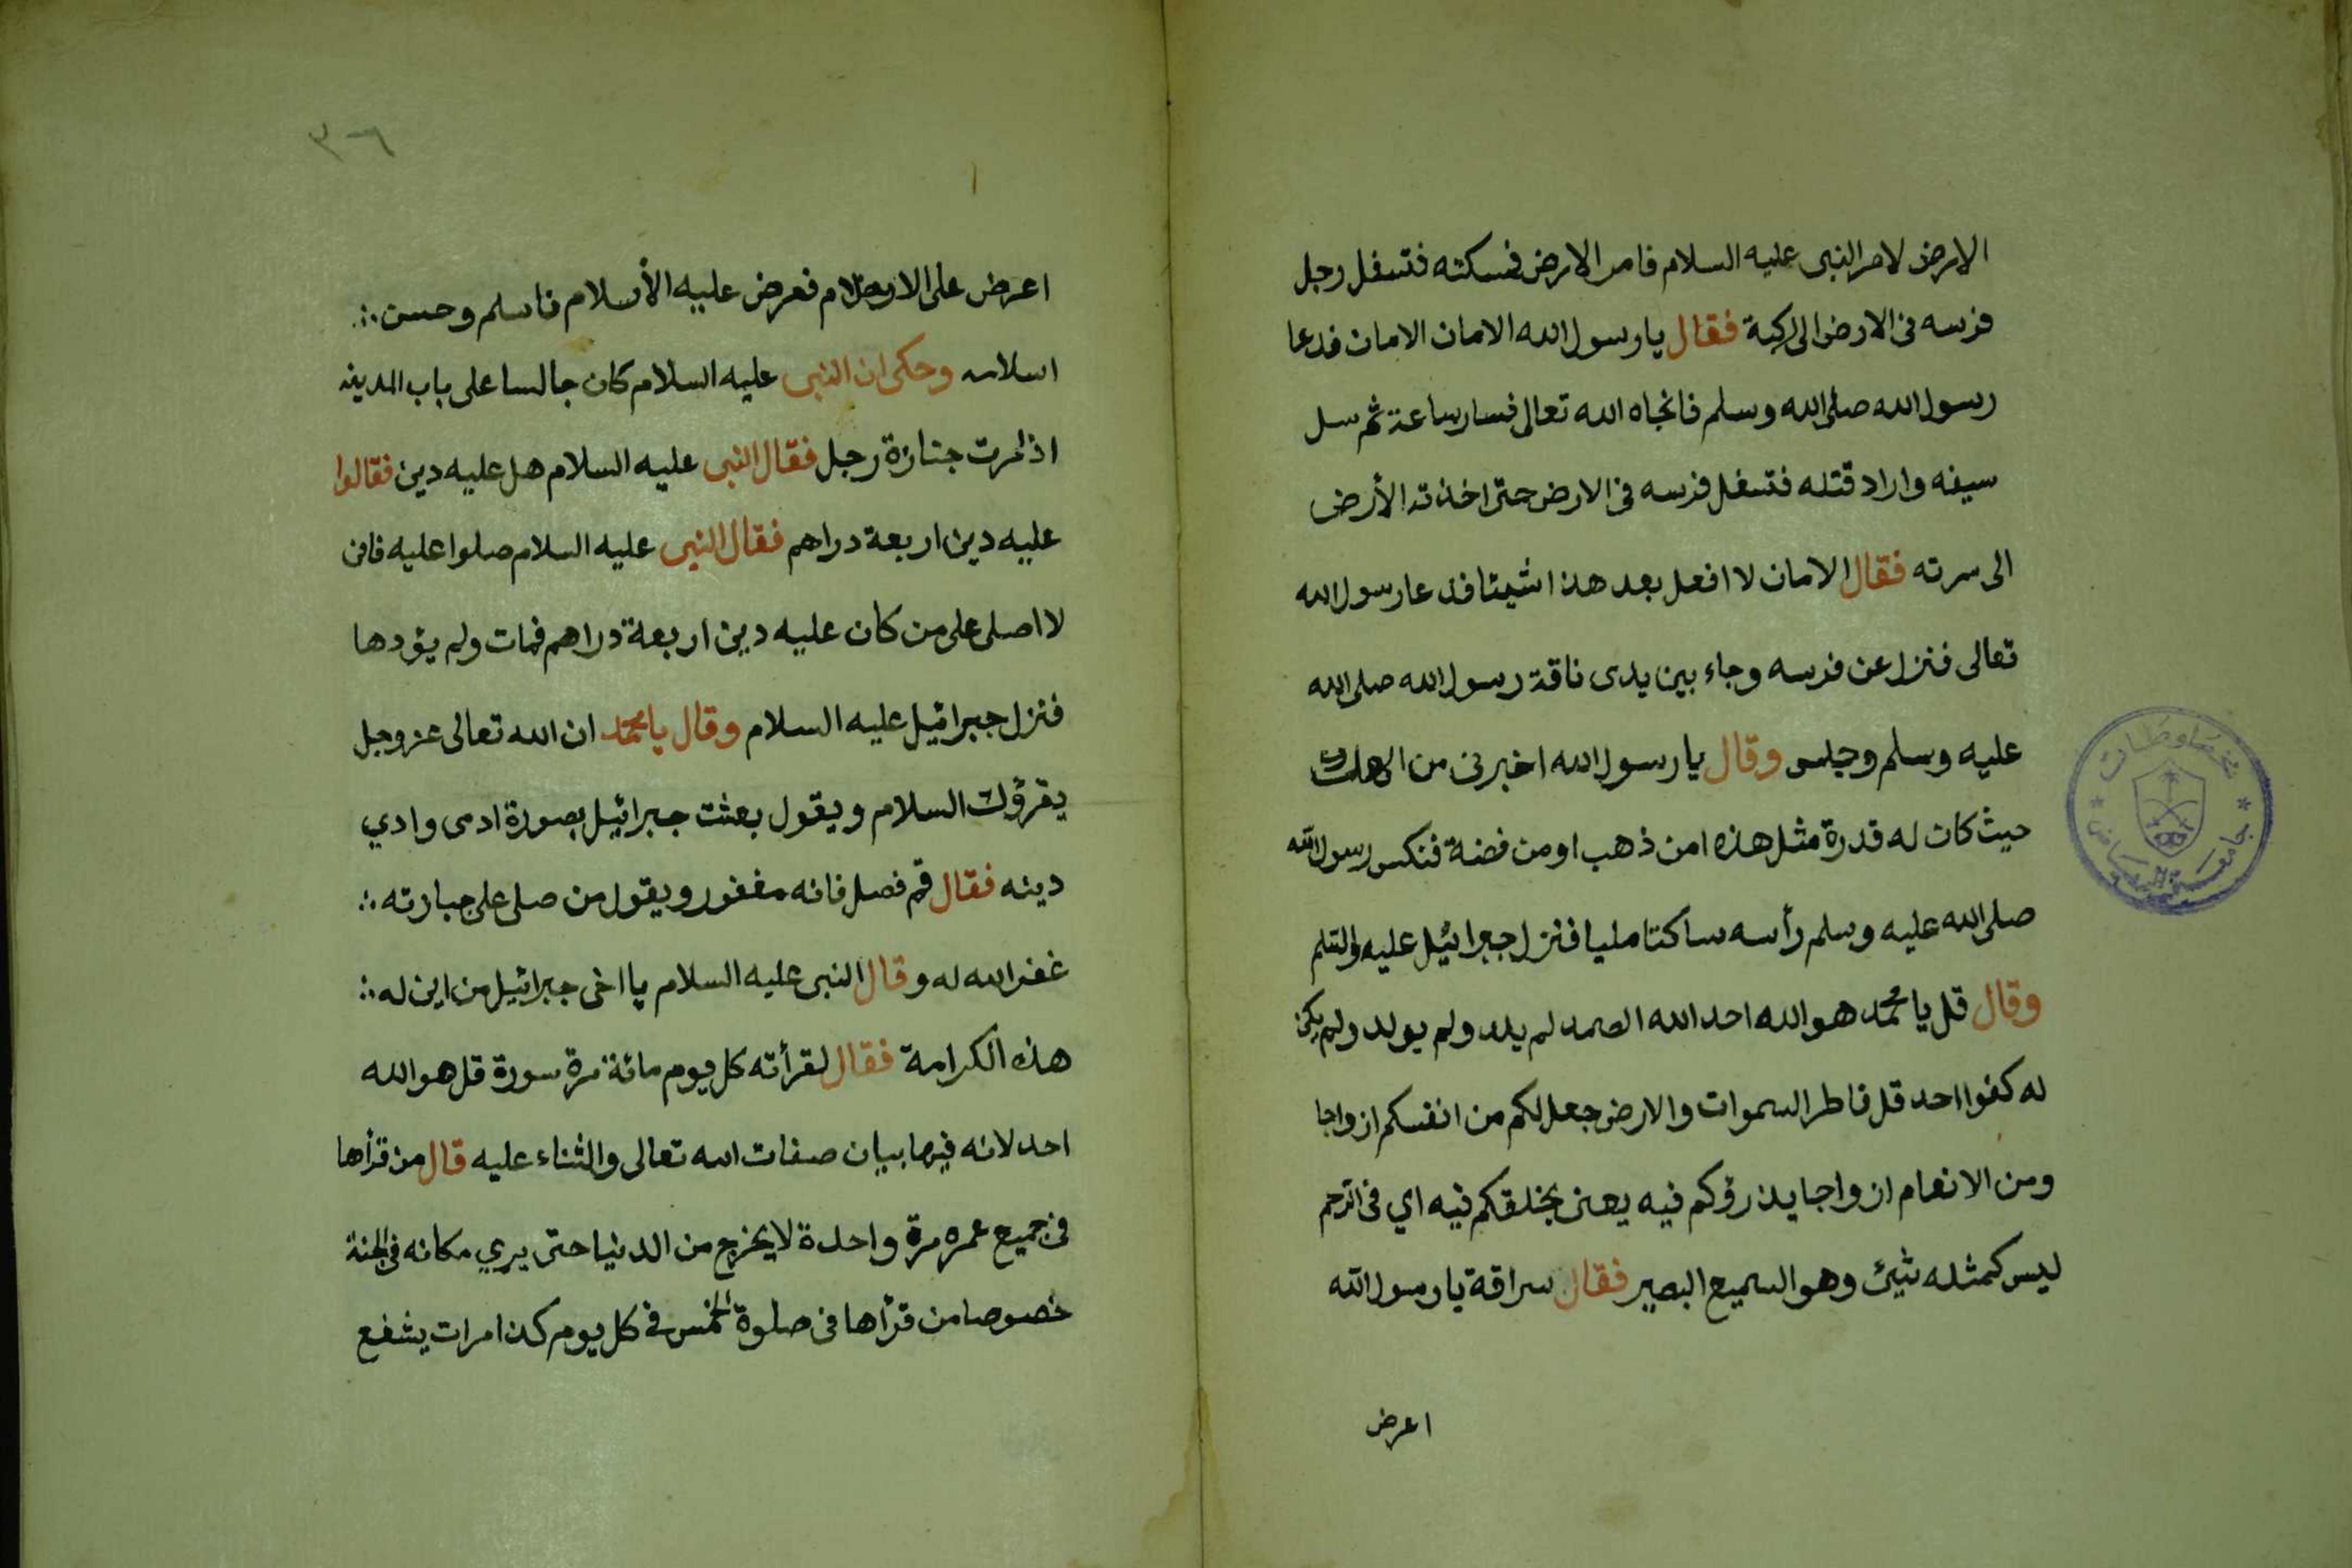 الارض لامر النبى عليه السلام فامر الارض فسكته فتسفل رجل
فرسه فى الارض الى ركبة فقال يا رسول الله الامان الامان فدعا
رسول الله صلى الله وسلم فانجاه الله تعالى فسار ساعة ثم سل
سيفه واراد قتله فتسفل فرسه فى الارض حتى اخذته الأرض
الى سرته فقال الامان لا افعل بعد هذا شيئا فدعا رسول الله
تعالى فنزل عن فرسه وجاء بين يدى ناقة رسول الله صلى الله
عليه وسلم وجلس وقال يا رسول الله اخبرنى من الهك
حيث كان له قدرة مثل هذه امن ذهب او من فضة فنكس رسول الله
صلى الله عليه وسلم رأسه ساكتا مليا فنزل جبرائيل عليه السلم
وقال قل يا محمد هو الله احد الله الصمد لم يلد ولم يولد ولم يكن
له كفوا احد قل فاطر السموات والارض جعل لكم من انفسكم ازواجا
ومن الانعام ازواجا يذرؤكم فيه يعنى يخلقكم فيه اي فى الرحم
ليس كمثله شيئ وهو السميع البصير فقال سراقة يا رسول الله
اعرض
مخطوطات
جامعة الرياض
٣٦
اعرض على الاسلام فعرض عليه الأسلام فاسلم وحسن
اسلامه وحكى ان النبى عليه السلام كان جالسا على باب المدينة
اذا مرت جنازة رجل فقال النبى عليه السلام هل عليه دين فقالوا
عليه دين اربعة دراهم فقال النبى عليه السلام صلوا عليه فانى
لا اصلى على من كان عليه دين اربعة دراهم فمات ولم يؤدها
فنزل جبرائيل عليه السلام وقال يا محمد ان الله تعالى عز وجل
يقرؤك السلام ويقول بعثت جبرائيل بصورة ادمى وادي
دينه فقال قم فصل فانه مغفور ويقول من صلى على جبارته
غفر الله له وقال النبى عليه السلام يا اخى جبرائيل من اين له
هذه الكرامة فقال لقرأته كل يوم مائة مرة سورة قل هو الله
احد لانه فيها بيان صفات الله تعالى والثناء عليه قال من قرأها
فى جميع عمره مرة واحدة لا يخرج من الدنيا حتى يري مكانه فى الجنة
خصوصا من قرأها فى صلوة الخمس فى كل يوم كذا مرات يشفع